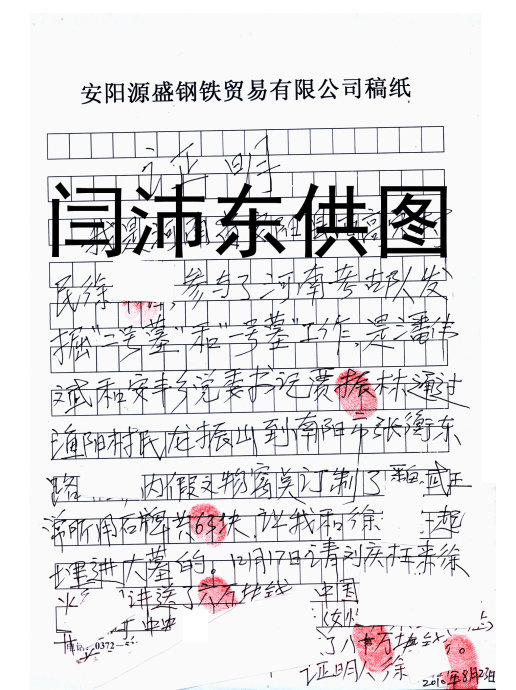 安阳源盛钢铁贸易有限公司稿纸
证明
闫沛东供图
民徐 ，参与了河南考古队发
掘"二号墓"和"一号墓"工作，是潘伟
斌和安丰乡党委书记贾振林通过
渔阳村民龙振山到南阳市张衡东
路 内假文物窝点订制了 魏武王
常所用石牌共63块，让我和徐 一起
埋进大墓的。12月17日请刘庆柱来徐
家 讲送了六万块钱 中国
电话：0372—
了八十万块钱。
证明人徐
2010年8月23日